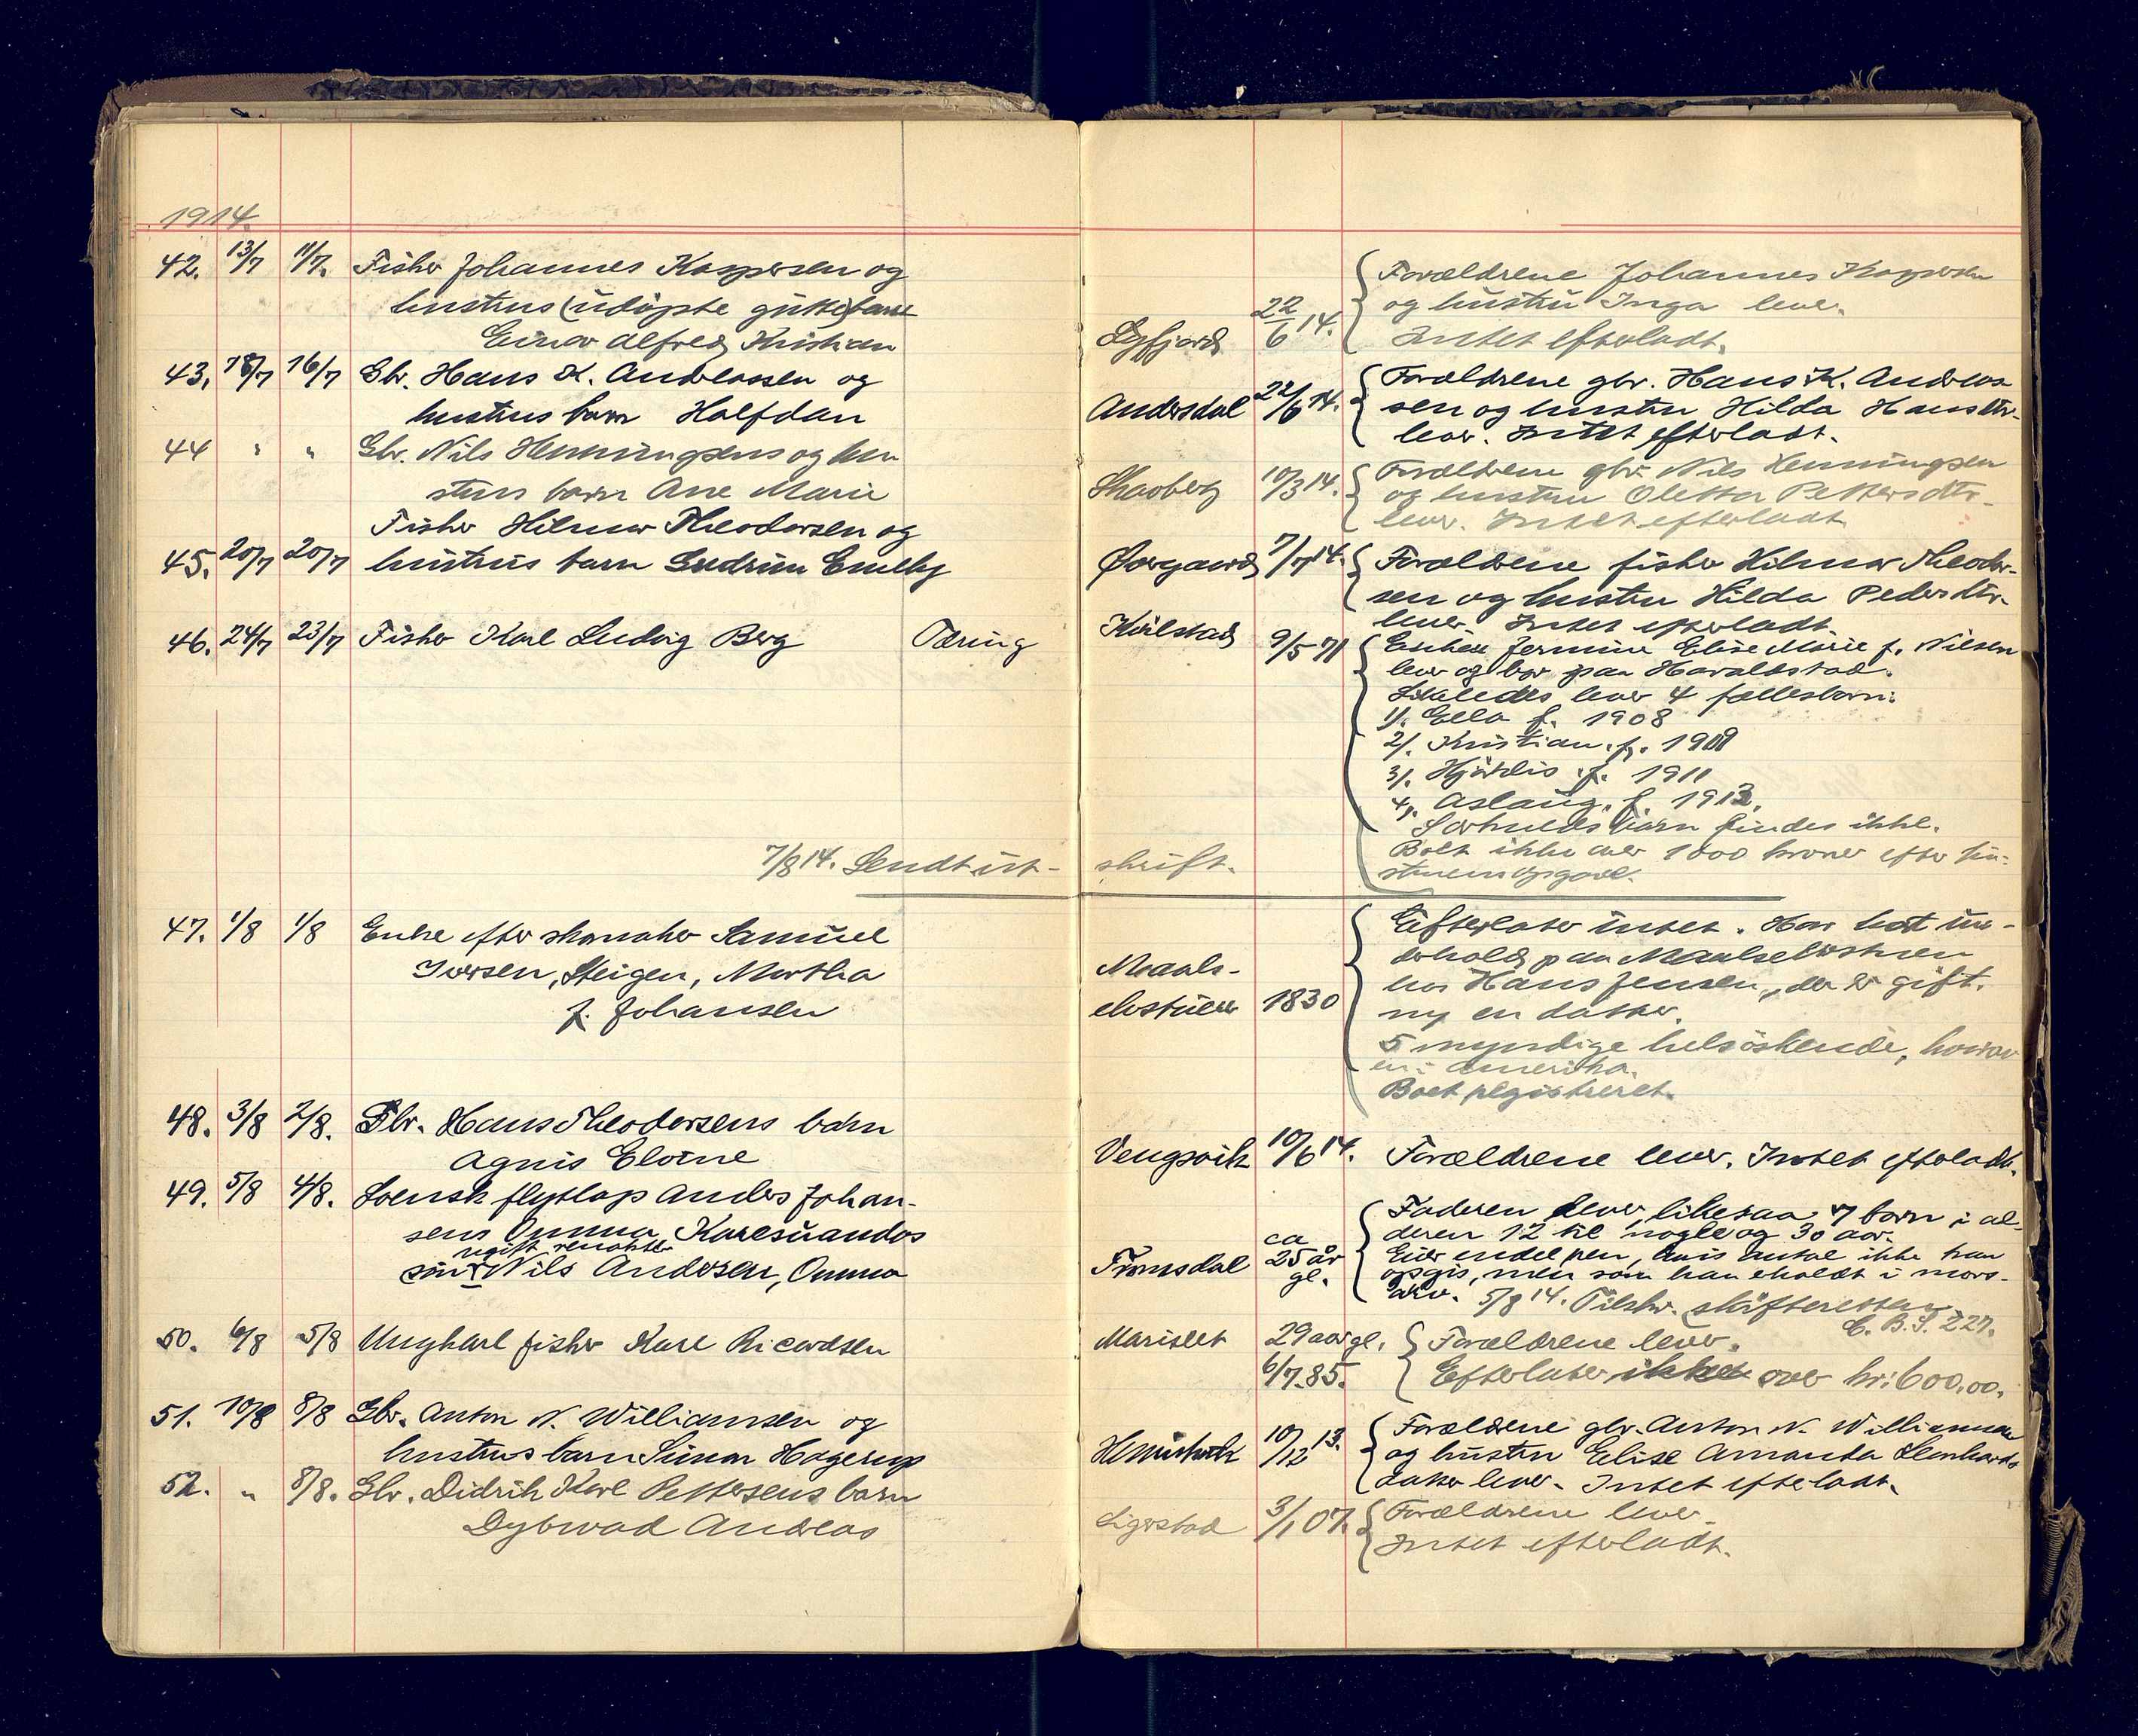 1914.
42. 13/7 11/7. Fisker Johannes Kaspersen og
hustrus (udöpte guttebarn
Einar Alfred Kristian
43. 18/7 16/7 Gbr. Hans K. Andreassen og
hustrus barn Halfdan
44 " " Gbr. Nils Henningsens og hu
strus barn Ane Marie
Fisker Hilmar Theodorsen og
45. 20/7 20/7 hustrus barn Gudrun Emelly
46. 24/7 23/7 Fisker Karl Ludvig Berg Tæring
7/8 14. Sendt ut-
47. 1/8 1/8 Enke efter skomaker Samuel
Iversen, Steigen, Martha
f. Johansen
48. 3/8 2/8. Gbr. Hans Theodorsens barn
Agnis Elvine
49. 5/8 4/8. Svensk flytlap Anders Johan-
sens Omma, Karesuandos
ugift
søn Nils Andersen, Omma
50. 6/8 5/8 Ungkarl fisker Karl Ricardsen
51. 10/8 8/8 Gbr. Anton N. Williamsen og
hustrus barn Simon Hagerup
52. " 8/8. Gbr. Didrik Karl Pettersens barn
Dybwad Andreas
22/6 14. Forældrene Johannes Kaspersen
og hustru Inga lever.
Intet efterladt.
Andersdal 22/6 14. Forældrene gbr. Hans K. Andreas
sen og hustru Hilda Hansdtr.
lever. Intet efterladt.
10/3 14. Forældrene gbr. Nils Henningsen
og hustru Oletta Pettersdtr.
lever. Intet efterladt
Øvergaard 7/7 14. Forældrene fisker Hilmar Theodor-
sen og hustru Hilda Pedersdtr.
lever. Intet efterladt.
9/5 71 Enken Jermine Elise Marie f. Nilsen
lever og bor paa Haraldstad.
Likeledes lever 4 fællesbarn:
1/. Ella f. 1908
2/. Kristian f. 1909
3/. Hjördis f. 1911
4/. Aslaug. f. 1913.
Særkuldsbarn findes ikke.
Boet ikke over 1000 kroner efter hu-
struens opgave.
skrift.
Maals-
elvstuen 1830
Efterlater intet. Har hat un-
derhold paa Maalselvstuen
hos Hans Jensen, der er gift
m/ en datter.
5 myndige helsöskende, hvorav
en i Amerika.
Boet registreret.
Vengsvik 10/6 14. Forældrene lever. Intet efterladt.
Tromsdal ca 25 år gl.
Faderen lever, likesaa 7 barn i al-
deren 12 til nogle og 30 aar.
Eier endel ren, hvis antal ikke kan
opgis, men som han erholdt i mors-
arv. 5/8 14. Tilskr. skifteretten
C. B. S. 227.
29 aar gl. Forældrene lever.
6/7 85. Efterlater ikke over kr: 600,00.
10/12 13. Forældrene gbr. Anton N. Williamsen
og hustru Elise Amanda Leonhards
datter lever. Intet efterladt.
3/1 07. Forældrene lever.
Intet efterladt.